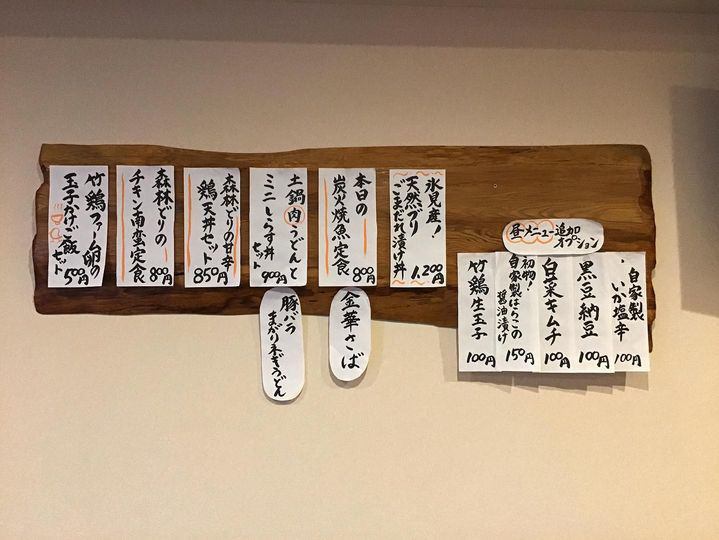 氷見産!
天然ブリ
ごまだれ漬け丼
1,200円
本日の
炭火焼魚定食
800円
金華さば
土鍋肉うどんと
ミニしらす丼
セット
900円
豚バラ
まがりねぎうどん
森林どりの甘辛
鶏天丼セット
850円
森林どりの
チキン南蛮定食
800円
竹鶏ファーム卵の
玉子かけご飯
セット
500円
昼メニュー追加
オプション
自家製
いか塩辛
100円
黒豆納豆
100円
白菜キムチ
100円
初物!
自家製はらこの
醤油漬け
150円
竹鶏生玉子
100円